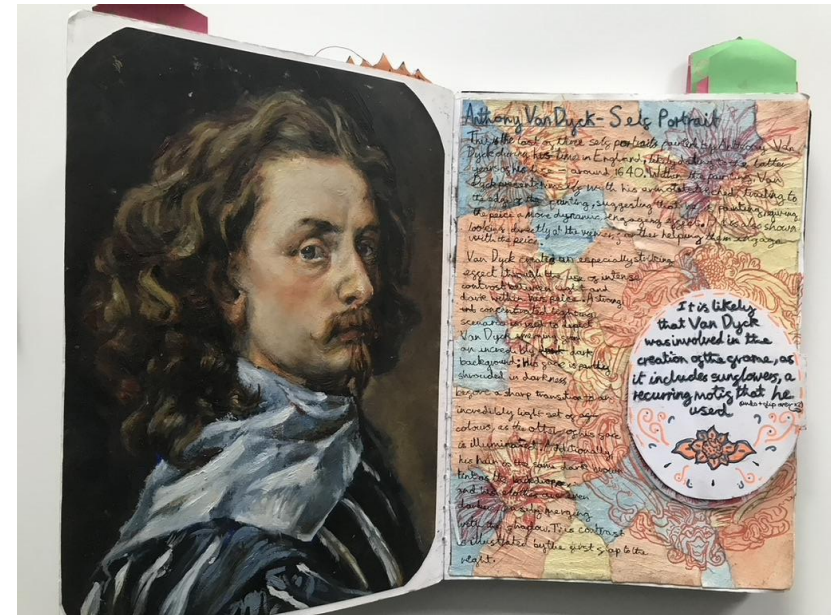 Anthony Van Dyck - Self Portrait
This is the last of three self portraits painted by Anthony Van
Dyck during his time in England, likely dating to the latter
years of his around 1640. Within the painting Van
Dyck presents himself with his arm outstretched trailing to
the edge of the painting, suggesting that he is painting giving
the peice a more dynamic, engaging He is also shown
looking directly at the viewer, further helping them engage
with the peice.
Van Dyck created an especially striking
effect through the use of intense
contrast between light and
dark within his peice. A strong
concentrated lighting
scenario is used to depict
Van Dyck
an incredibly dark
background; His face is partly
shrouded in darkness
before a sharp transition to an
incredibly light set of
colours, as the other of his face
is illuminated. Additionally
his hair is the same dark brown
tint as the backdrop,
and his clothes are even
darker, merging
with the shadow. This contrast
is illustrated by the first flap to the
right.
It is likely
that Van Dyck
was involved in the
creation of the frame, as
it includes sunflowers, a
recurring motif that he
used.